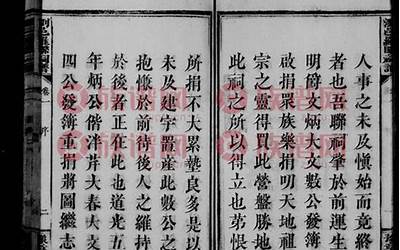 人事之未及愼始而竟終
者也吾聯祠肇於前運生
明鋅文炳大文數公發簿
啟捐眾族樂捐明天地祖
宗之靈得買此營盤勝地
此祠之所以得立也苐恨
所捐不大累墊良多是以
未及建宇置產此數公之
抱憾於前待後人之維持
於後者正在此也道光五
年炳公偕洋芹大春大文
四公發簿重捐將圖繼志
卷一 序 二